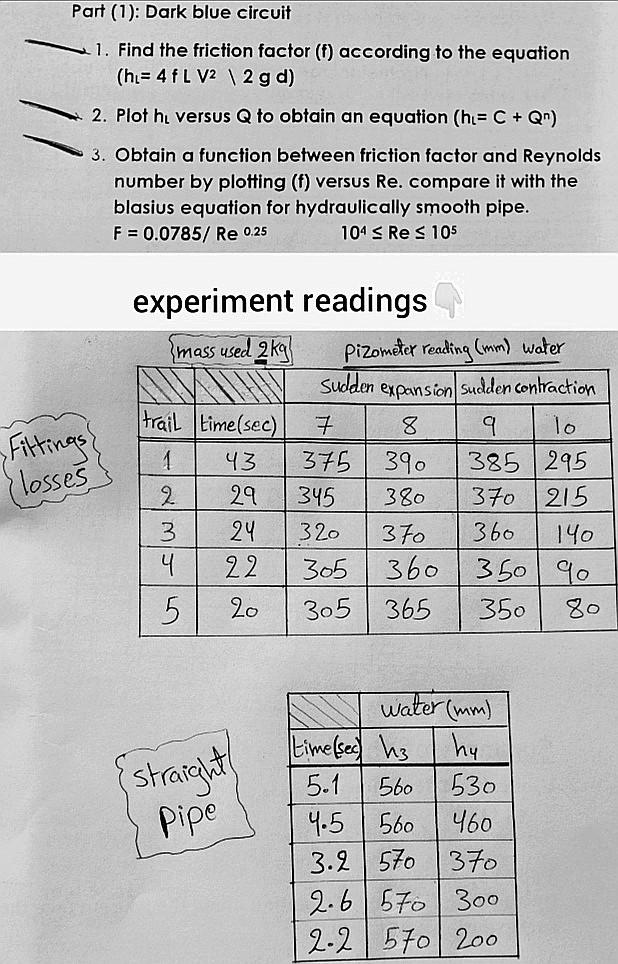 Part (1): Dark blue circuit
1. Find the friction factor (f) according to the equation
(hL= 4 f L V² \ 2 g d)
2. Plot hL versus Q to obtain an equation (hL= C + Qⁿ)
3. Obtain a function between friction factor and Reynolds
number by plotting (f) versus Re. compare it with the
blasius equation for hydraulically smooth pipe.
F = 0.0785/ Re 0.25 10⁴ ≤ Re ≤ 10⁵
experiment readings👇
mass used 2kg pizometer reading (mm) water
Sudden expansion sudden contraction
trail time(sec) 7 8 9 10
Fittings
losses
1 43 375 390 385 295
2 29 345 380 370 215
3 24 320 370 360 140
4 22 305 360 350 90
5 20 305 365 350 80
water (mm)
time(sec) h3 h4
straight
pipe
5.1 560 530
4.5 560 460
3.2 570 370
2.6 570 300
2.2 570 200